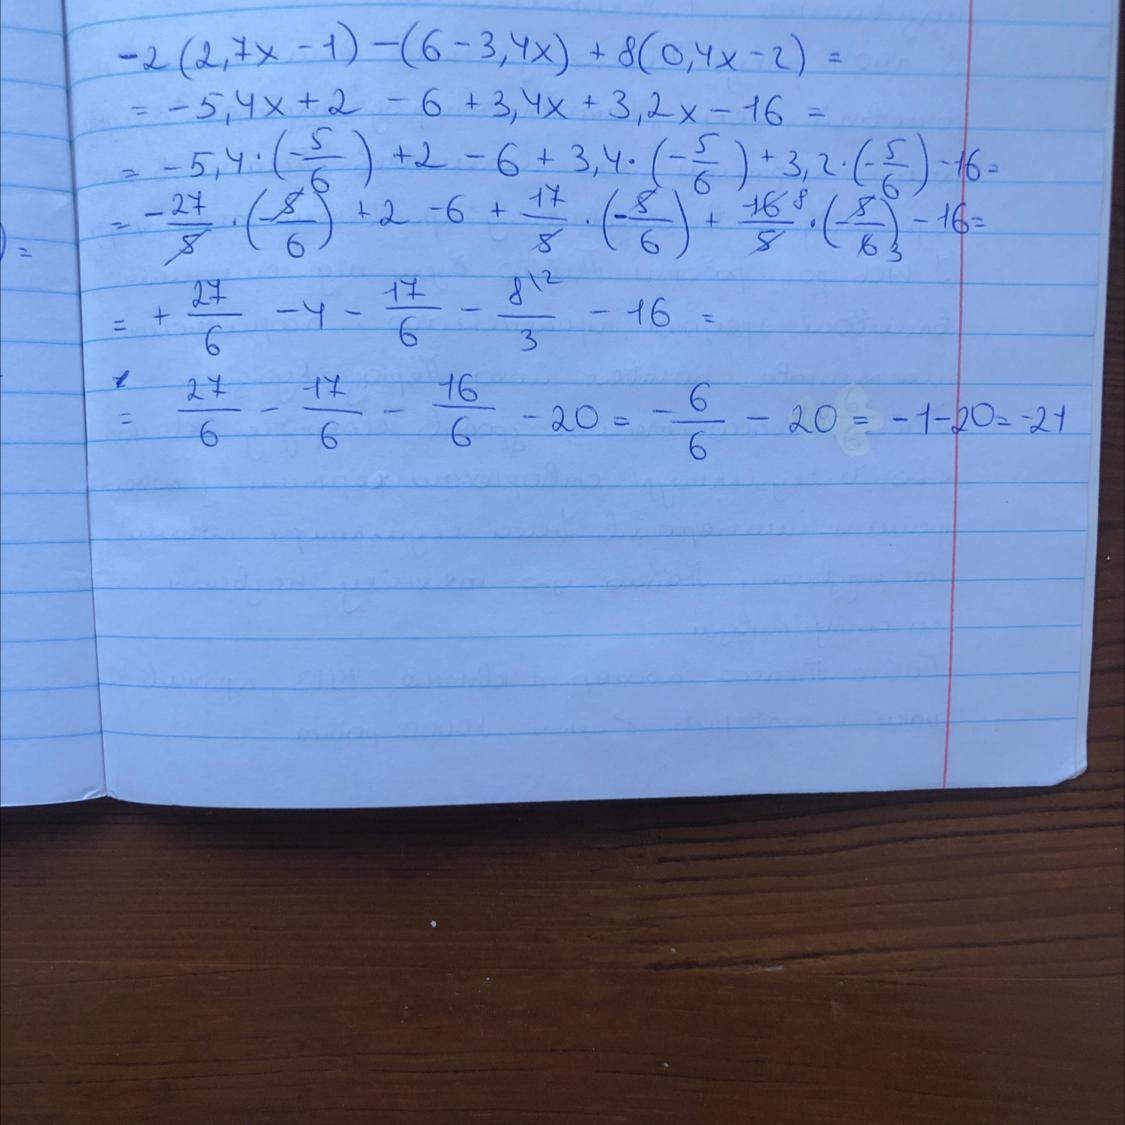 -2(2,7x-1)-(6-3,4x)+8(0,4x-2)=
=-5,4x+2-6+3,4x+3,2x-16=
=-5,4·(-5/6)+2-6+3,4·(-5/6)+3,2·(-5/6)-16=
=-27/5·(-5/6)+2-6+17/5·(-5/6)+16 8/5·(-5/6 3)-16=
)=
=+27/6-4-17/6-8\2/3-16=
=27/6-17/6-16/6-20=-6/6-20=-1-20=-21